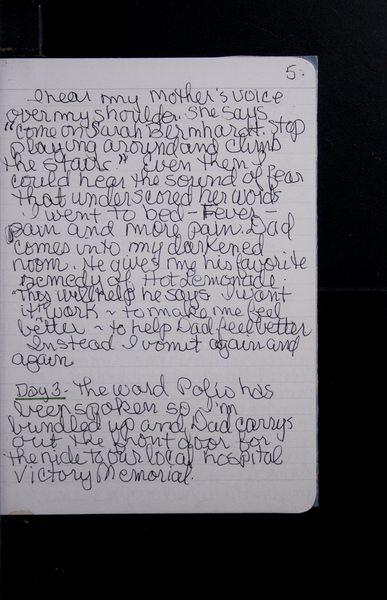 5.
I hear my Mother's voice
over my shoulder. She says
"come on Sarah Bernhardt. Stop
playing around and climb
the stairs." Even then I
could hear the sound of fear
that underscored her words
I went to bed - Fever -
pain and more pain. Dad
comes into my darkened
room. He gives me his favorite
remedy of Hot Lemonade.
This will help he says. I want
it work ~ to make me feel
better ~ to help Dad feel better
Instead I vomit again and
again
Day 3 - The word Polio has
been spoken so I'm
bundled up and Dad carrys
out the front door for
the ride to our local hospital
Victory Memorial.